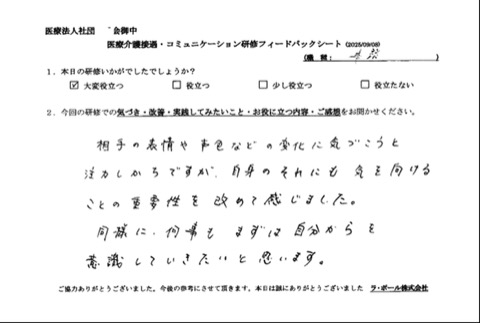 医療法人社団 会御中
医療介護接遇・コミュニケーション研修フィードバックシート (2025/09/08)
(職種: )
1.本日の研修いかがでしたでしょうか?
☑ 大変役立つ □ 役立つ □ 少し役立つ □ 役立たない
2.今回の研修での気づき・改善・実践してみたいこと・お役に立つ内容・ご感想をお聞かせください。
相手の表情や声色などの変化に気づこうと
注力しがちですが、自身のそれにも気を向ける
ことの重要性を改めて感じました。
同様に、何事もまずは自分からを
意識していきたいと思います。
ご協力ありがとうございました。今後の参考にさせて頂きます。本日は誠にありがとうございました ラ・ポール株式会社